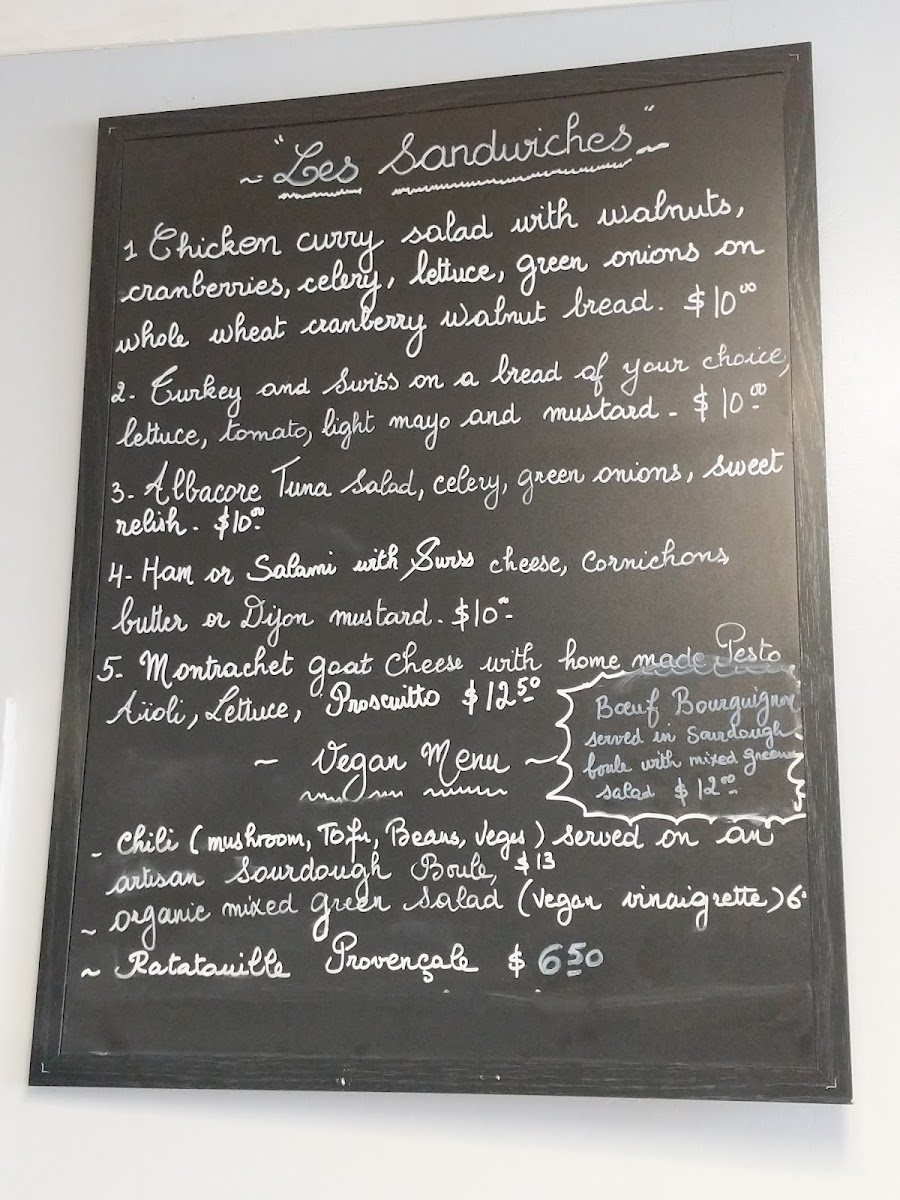 ~ "Les Sandwiches" ~
1 Chicken curry salad with walnuts,
cranberries, celery, lettuce, green onions on
whole wheat cranberry walnut bread. $10 00
2. Turkey and Swiss on a bread of your choice,
lettuce, tomato, light mayo and mustard - $10 00
3- Albacore Tuna Salad, celery, green onions, sweet
relish. $10 00
4- Ham or Salami with Swiss cheese, Cornichons
butter or Dijon mustard. $10 00
5- Montrachet goat Cheese with home made Pesto
Aïoli, Lettuce, Proscuitto $12 50
Bœuf Bourguignon
served in Sourdough
boule with mixed green
salad $12 00
~ Vegan Menu ~
- Chili (mushroom, Tofu, Beans, Veges) served on an
artisan Sourdough Boule, $13
~ organic mixed green salad (Vegan vinaigrette) 6
~ Ratatouille Provençale $ 6 50